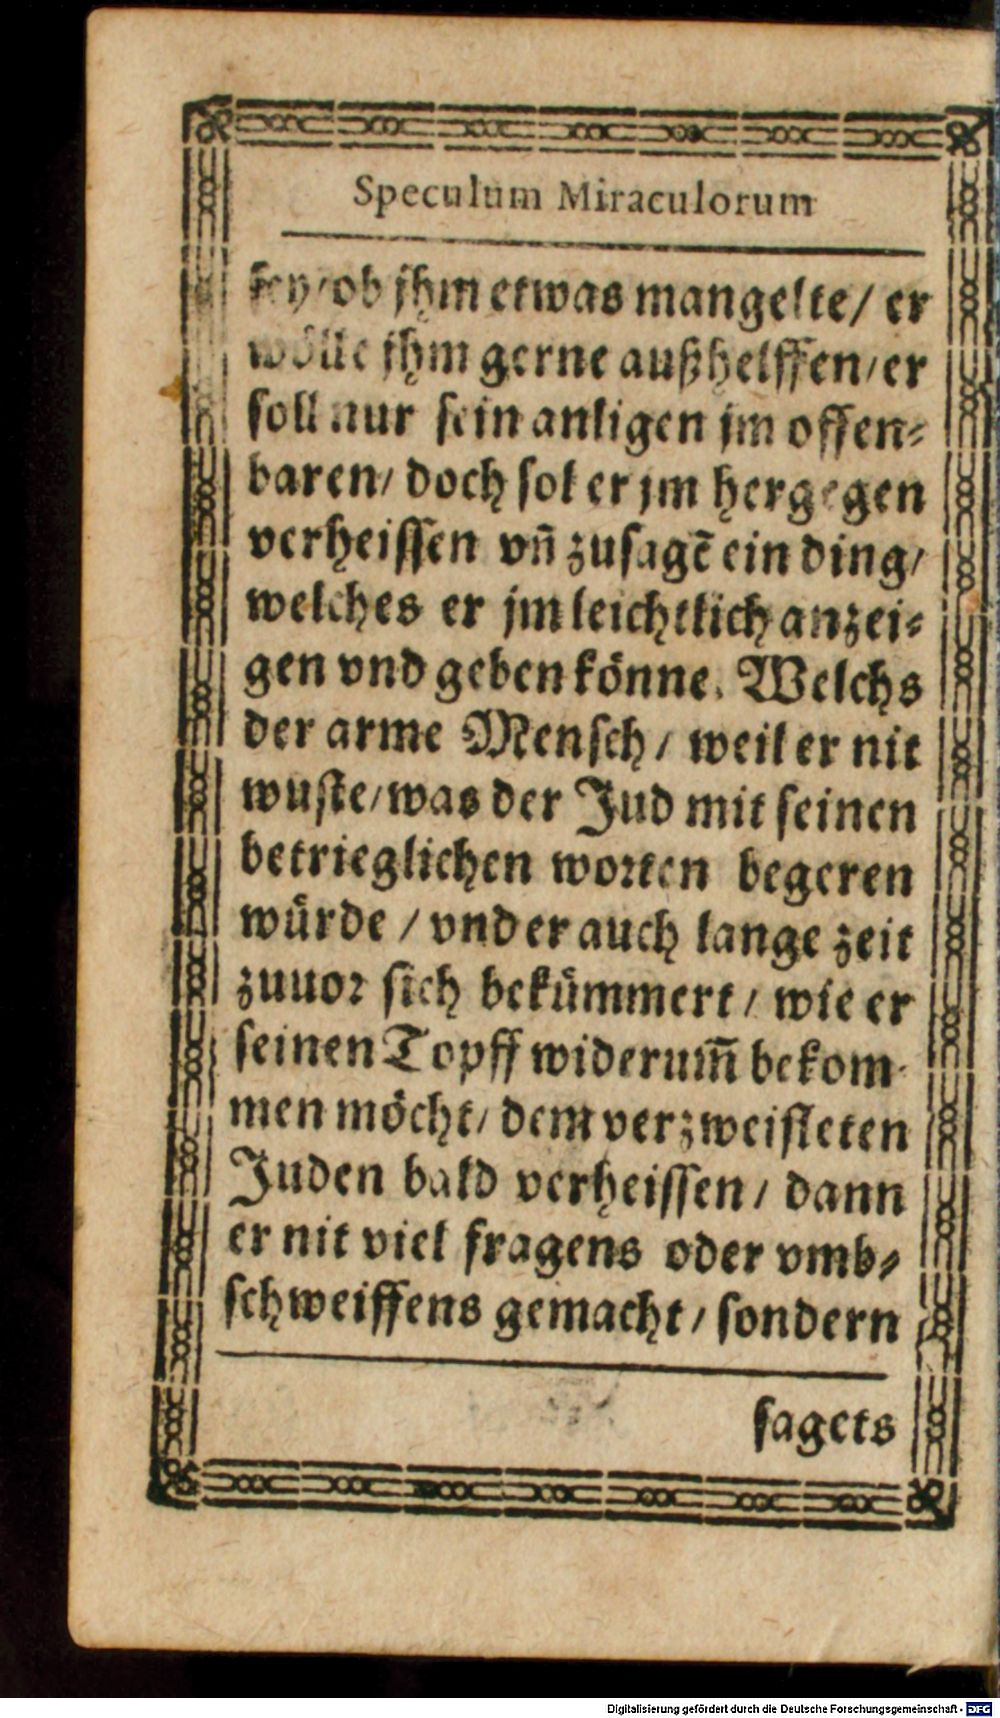 Speculum Miraculorum
sey/ ob jhm etwas mangelte/ er
wölle jhm gerne außhelffen/ er
soll nur sein anligen jm offen⸗
baren/ doch sol er jm hergegen
verheissen vñ zusagẽ ein ding/
welches er jm leichtlich anzei⸗
gen vnd geben könne. Welchs
der arme Mensch/ weil er nit
wuste/ was der Jud mit seinen
betrieglichen worten begeren
würde/ vnd er auch lange zeit
zuuor sich bekümmert/ wie er
seinen Topff widerum̃ bekom⸗
men möcht/ dem verzweifleten
Juden bald verheissen/ dann
er nit viel fragens oder vmb⸗
schweiffens gemacht/ sondern
sagets
Digitalisierung gefördert durch die Deutsche Forschungsgemeinschaft - DFG